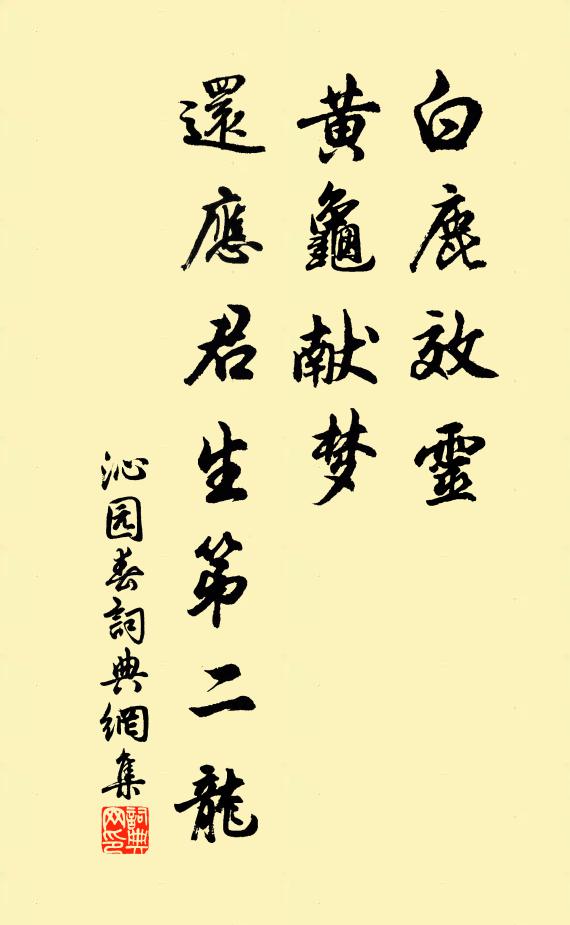 白鹿效靈
黃龜献梦
還應君生第二龍
沁园春詞典網集
詞典网印